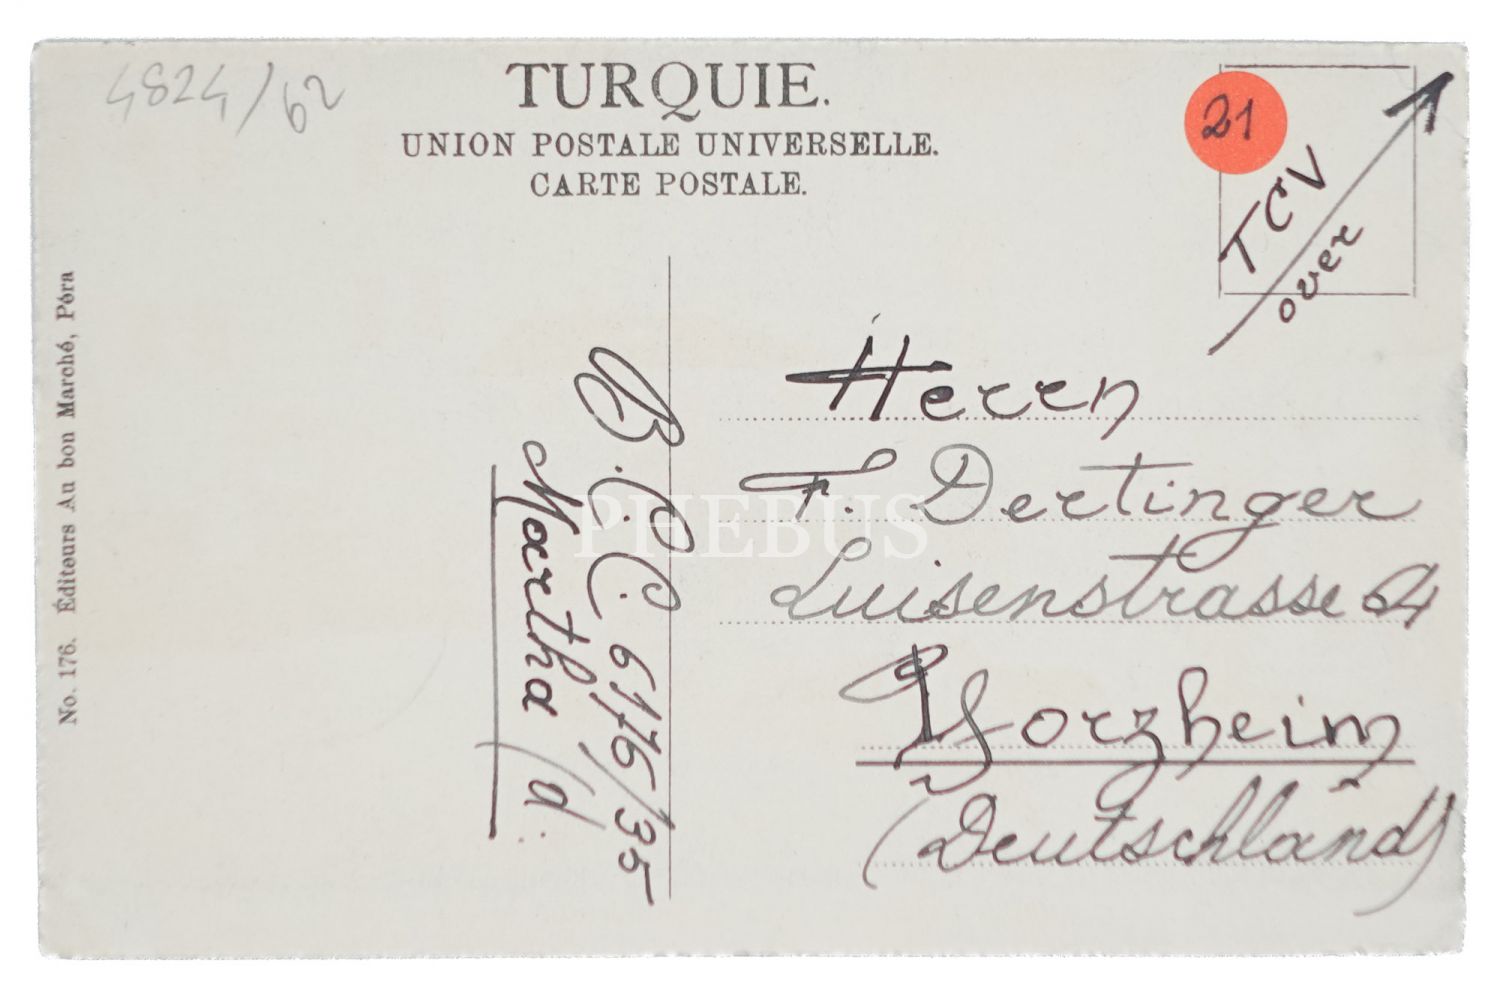 4824/62
TURQUIE.
UNION POSTALE UNIVERSELLE.
CARTE POSTALE.
21
TCV
over
No. 176. Éditeurs Au bon Marché, Péra
B.C.C. 6176/35
Martha (d.
PHEBUS
Herrn
F. Dertinger
Luisenstrasse
Pforzheim
(Deutschland)